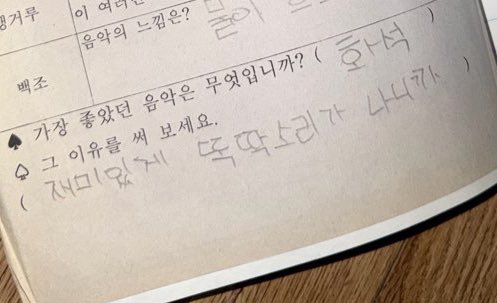 캥거루 이 여러
음악의 느낌은? 물이
백조
♠ 가장 좋았던 음악은 무엇입니까? ( 화석 )
♤ 그 이유를 써 보세요.
( 재미있게 똑딱소리가 나니까 )